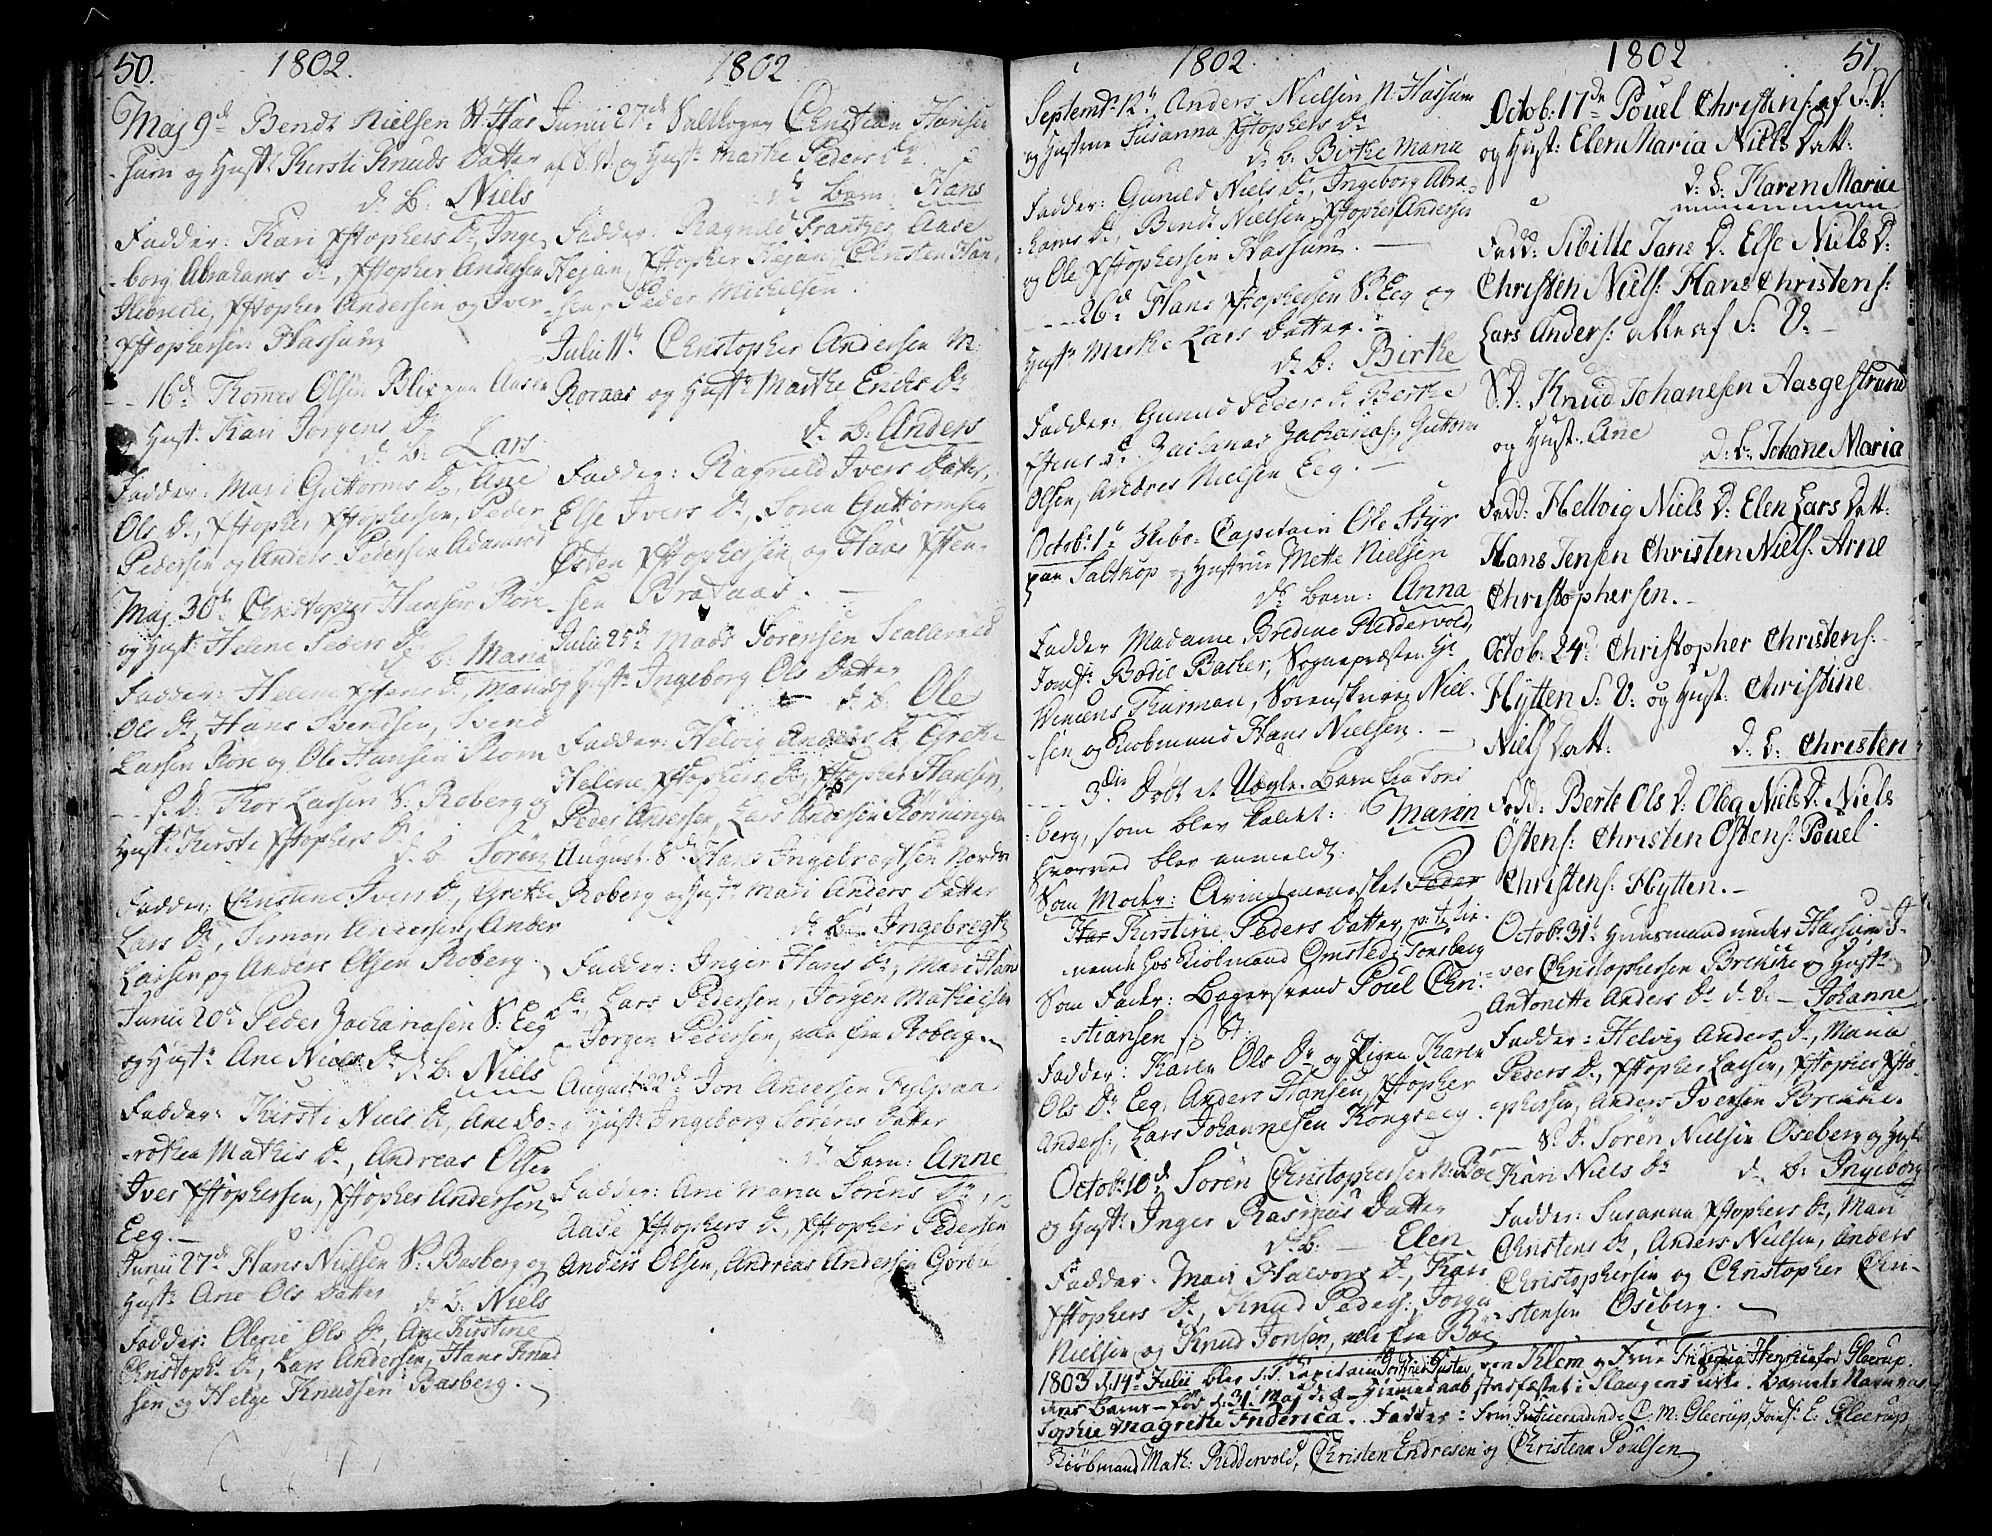 50.
1802.
Maj 9de Bendt Nielsen N. Has
sum og Hust: Kersti Knuds Datter
d. B: Niels
Fadder: Kari Xstophers Dr, Inge
borg Abrahams Dr, Xstopher Andersen
Xstopher Andersen og Iver
Xstophersen Hassum
16de Thomes Olsen Blix paa Aasen
Hust: Kari Jørgens Dr
d. B: Lars
Fadder: Mari Guttorms Dr, Ane
Ols Dr, Xstopher Xstophersen, Peder
Pedersen og Anders Pedersen Adamsrød
Maj 30te Christopher Hansen Rore
og Hust: Helene Peders Dr
d. B: Maria
Fadder: Helene Xstens Dr, Maria
Ols Dr, Hans Svendsen, Svend
Larsen Rore og Ole Hansen Rom
s. D: Thor Larsen S. Roberg og
Hust: Kersti Xstophers Dr
d. B: Søren
Fadder: Christine Ivers Dr, Grethe
Lars Dr, Simon Andersen, Anders
Larsen og Anders Olsen Roberg.
Junii 20de Peder Zachariasen S: Eeg
og Hust: Ane Niels Dr
d. B: Niels
Fadder: Kirsti Niels Dr, Ane Do-
rothea Mathis Dr, Andreas Olsen
Iver Xstophersen, Xstopher Andersen
Eeg.
Junii 27de Hans Nielsen S: Basberg og
Hust: Ane Ols Datter
d. B: Niels
Fadder: Olene Ols Dr, Ane Kirstine
Christoph: Dr, Lars Andersen, Hans Knud
sen og Helge Knudsen Basberg.
1802
Junii 27de Saltkoger Christian Hansen
af S. V. og Hust: Marthe Peders Dr
dr Barn: Hans
Fadder: Ragnild Frantzes, Aase
Hejan, Xstopher Hejan, Christen Han
sen, Peder Michelsen.
Julii 11te Christopher Andersen M.
Roraas og Hust: Marthe Erichs Dr
d. B: Anders
Fadder: Ragnild Ivers Datter,
Else Ivers Dr, Soren Guttormsen
Østen Xstophersen og Hans Xsten-
sen Brataas.
Julii 25de Mads Sørensen Scallevold
og Hust: Ingeborg Ols Datter
d. B: Ole
Fadder: Helvig Anders Dr, Grethe
Helene Xstophers Dr, Xstopher Hansen,
Peder Andersen, Lars Andersen Rønningen
August. 8de Hans Ingebregtsen Nordr
Roberg og Hust: Mari Anders Datter
d. B: Ingebregt
Fadder: Inger Hans Dr, Mari Hans
Dr, Lars Pedersen, Jørgen Mathiesen
Jørgen Pedersen, alle fra Roberg.
August 22de Jon Andersen Fylpaa
Hust: Ingeborg Sørens Datter
dr Barn: Anne
Fadder: Ane Maria Sørens Dr,
Aase Xstophers Dr, Xstopher Pedersen
Anders Olsen, Andreas Andersen Gørbu
1802.
Septembr 12te Anders Nielsen N. Hassum
og Hustrue Susanna Xstophers Dr
d. B: Birthe Maria
Fadder: Gunild Niels Dr, Ingeborg Abra-
hams Dr, Bendt Nielsen, Xstopher Andersen
og Ole Xstophersen Hassum.
26de Hans Xstophersen S: Eeg og
Hust: Marthe Lars Datter.
d. B: Birthe
Fadder: Gunild Peders Dr Berthe
Xstens Dr Zacharias Zacharias:, Guttorm
Olsen, Andres Nielsen Eeg.
Octob: 1te Skibs-Capitain Ole Styr
paa Saltkop og Hustrue Mette Nielsen
dr Barn: Anna
Fadder Madame Bredine Reddervold,
Jomfr: Bodil Barker, Sognepræsten Hr
Vincens Thurman, Sorenskriver Niel-
sen og Kiobmand Hans Nielsen.
3die Døbt et Uægte Barn fra Tøns
berg, som blev kaldet: Marin
hvorved blev anmeldt:
Som Moder: Qvindemennesket Peder
Kirstine Peders Datter, p. t. tie-
nende hos Kiobmand Omsted i Tonsberg
Som Fader: Bagersvend Poul Chri-
stiansen
Fadder: Karen Ols Dr og Pigen Karen
Ols Dr Eeg, Anders Hansen, Xstopher
Anders:, Lars Johannesen Kongseeg.
Octob: 10de Søren Christophersen N. Bøe
og Hust: Inger Rasmus Datter
d. B: Elen
Fadder. Mari Halvors Dr, Kari
Xstophers Dr, Knud Peders:, Jørgen
Nielsen og Knud Jonsen, alle fra Bøe
1802
51.
Octob: 17de Pouel Christens: af S: V:
og Hust: Elen Maria Niels Datt:
d. B. Karen Marie
Fadd: Sibille Jans D: Else Niels D:
Christen Niels: Hans Christens:
Lars Anders: alle af S: V:
S: D: Knud Johanesen Aasgestrand
og Hust: Ane
D. B. Johane Maria
Fadd: Hellvig Niels D: Elen Lars Datt:
Hans Jensen Christen Niels: Arne
Christophersen.
Octob: 24de Christopher Christens:
Hytten S: V: og Hust: Christine
Niels Datt:
d. B: Christen
Fadd: Berte Ols D: Oleg Niels D: Niels
Østens: Christen Østens: Pouel
Christens: Hytten.
Octob: 31te Huusmand under Hassum I-
ver Christophersen Brekke og Hust:
Antonette Anders Dr d. B. Johanne
Fadder: Helvig Anders Dr, Maria
Peders Dr, Xstopher Larsen, Xstopher Xsto-
phersen, Anders Iversen Brekke.
S. D. Søren Nielsen Oseberg og Hust:
Kari Niels Dr d. B: Ingeborg
Fadder: Susanna Xstophers Dr, Mari
Christens Dr, Anders Nielsen, Anders
Christophersen og Christopher Chri-
stensen Oseberg.
1803 d. 14de Julii blev S.T. Capitain Gotfried Gustav von Klem og Frue Friderica Henrica fød Gleerup.
deres Barns fød d. 31. Maj d. A. Hiemmedaab stadfæstet i Slaugens Kirke. Barnets Navn var
Sophie Magrethe Friderica. Fadder: C. M: Gleerup, Jomf: E: Gleerup,
Kiøbmand Math: Reddervold, Christen Endresen og Christian Poulsen